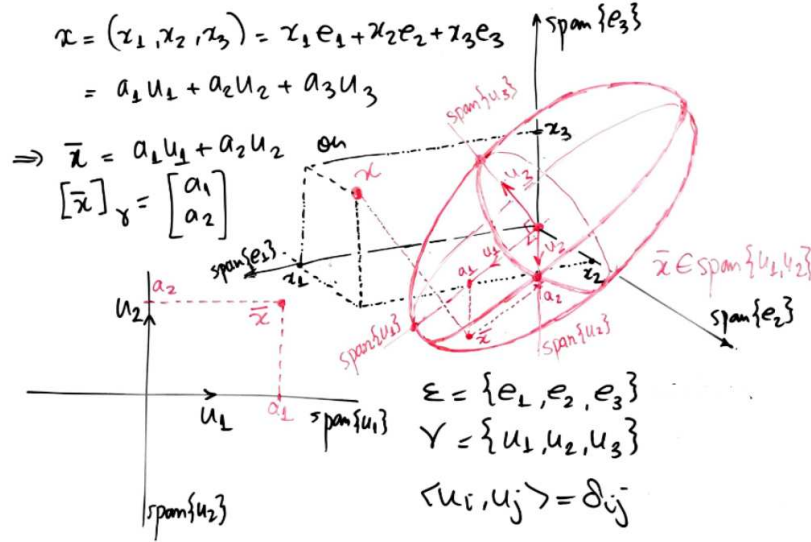 x = (x₁, x₂, x₃) = x₁e₁ + x₂e₂ + x₃e₃
= a₁u₁ + a₂u₂ + a₃u₃
⇒ x̄ = a₁u₁ + a₂u₂ on
[x̄]_γ = [a₁ a₂]
span{e₃}
span{u₃}
x₃
x
u₃
span{e₁}
x₁
u₁
u₂
a₁
x₂
x̄ ∈ span{u₁,u₂}
a₂
x̄
span{u₁}
span{u₂}
span{e₂}
a₂
u₂
x̄
u₁
a₁
span{u₁}
span{u₂}
ε = {e₁, e₂, e₃}
γ = {u₁, u₂, u₃}
<uᵢ, uⱼ> = δᵢⱼ